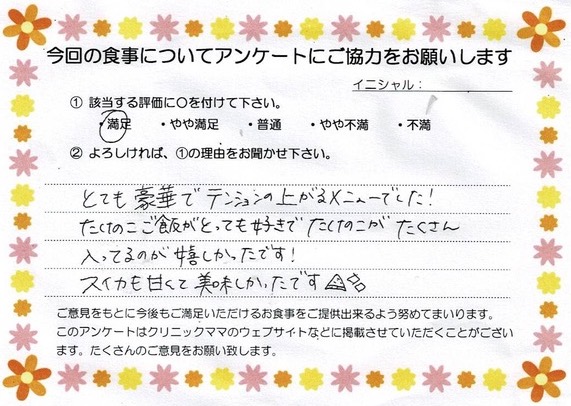 今回の食事についてアンケートにご協力をお願いします
イニシャル：
① 該当する評価に○を付けて下さい。
・満足 ・やや満足 ・普通 ・やや不満 ・不満
② よろしければ、①の理由をお聞かせ下さい。
とても豪華でテンションの上がるメニューでした！
たけのこご飯がとっても好きでたけのこがたくさん
入ってるのが嬉しかったです！
スイカも甘くて美味しかったです
ご意見をもとに今後もご満足いただけるお食事をご提供出来るよう努めてまいります。
このアンケートはクリニックママのウェブサイトなどに掲載させていただくことがござい
ます。たくさんのご意見をお願い致します。